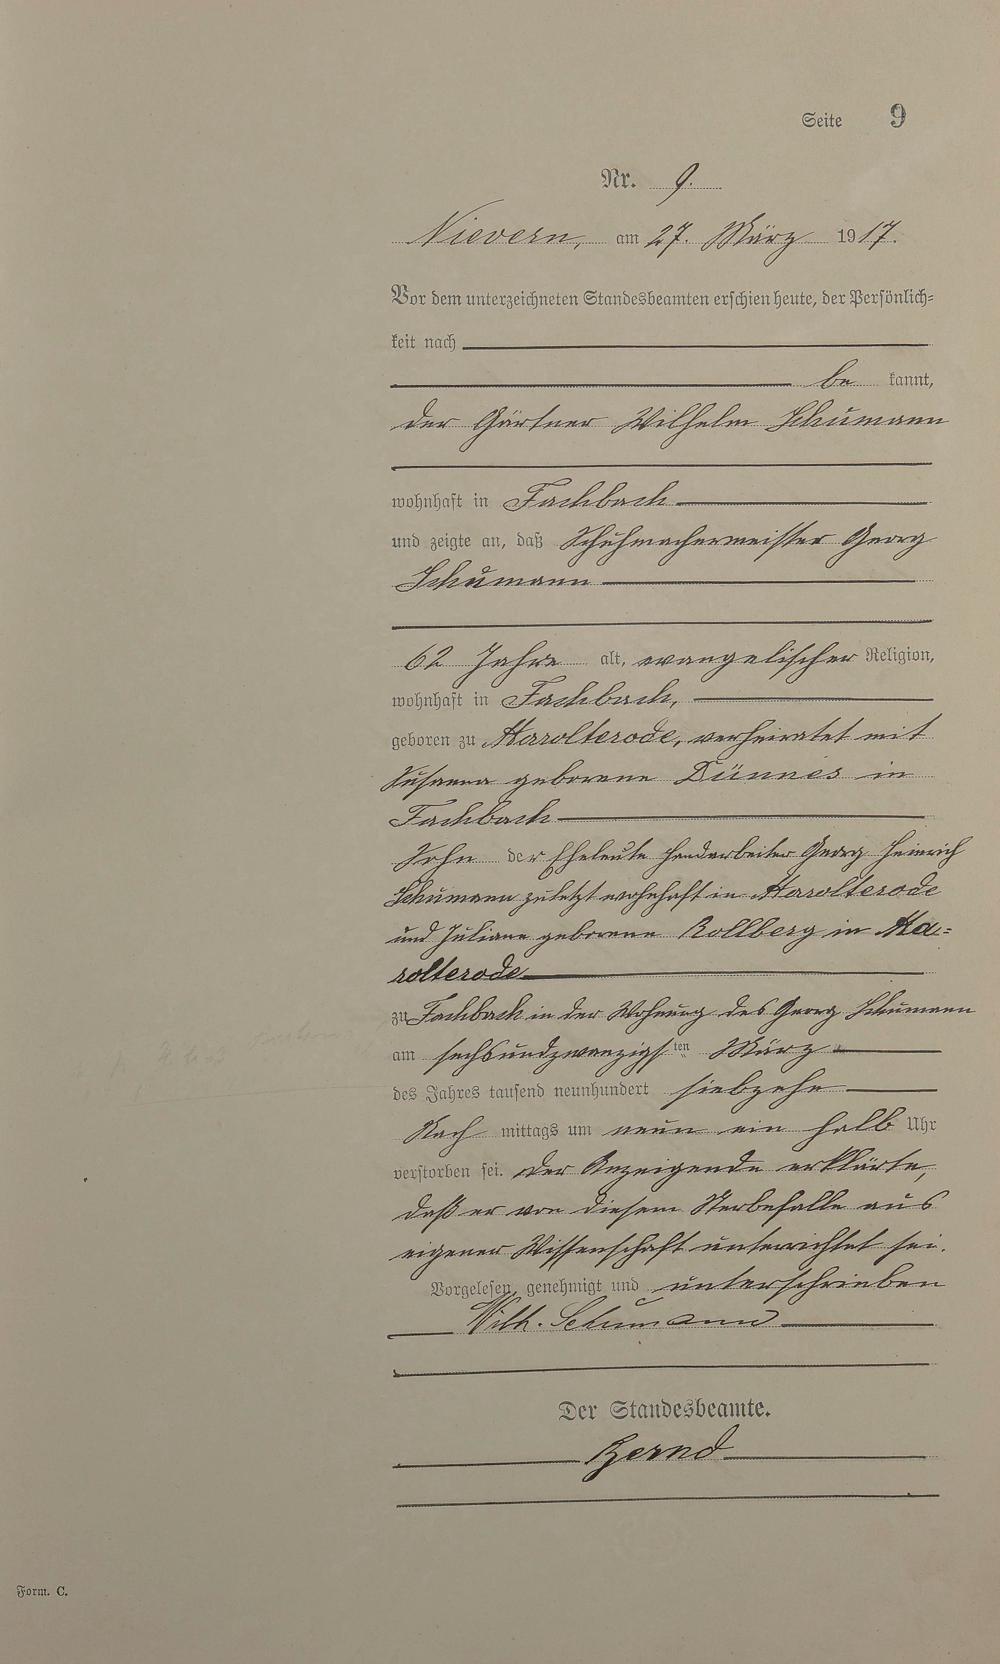 Seite 9
Nr. 9.
Nievern, am 27. März 1917.
Vor dem unterzeichneten Standesbeamten erschien heute, der Persönlich=
keit nach
be kannt,
der Gärtner Wilhelm Schumann
wohnhaft in Fachbach
und zeigte an, daß Schuhmachermeister Georg
Schumann
62 Jahre alt, evangelischer Religion,
wohnhaft in Fachbach,
geboren zu Harolterode, verheiratet mit
Susanna geborene Dünnes in
Fachbach
Sohn der Eheleute Handarbeiter Georg Heinrich
Schumann zuletzt wohnhaft in Harolterode
und Juliane geborene Rollberg in Ha=
rolterode
zu Fachbach in der Wohnung des Georg Schumann
am sechsundzwanzigsten März
des Jahres tausend neunhundert siebzehn
Nach mittags um neun ein halb Uhr
verstorben sei. Der Anzeigende erklärte,
daß er von diesem Sterbefalle aus
eigener Wissenschaft unterrichtet sei.
Vorgelesen, genehmigt und unterschrieben
Wilh. Schumann
Der Standesbeamte.
Bernd
Form. C.